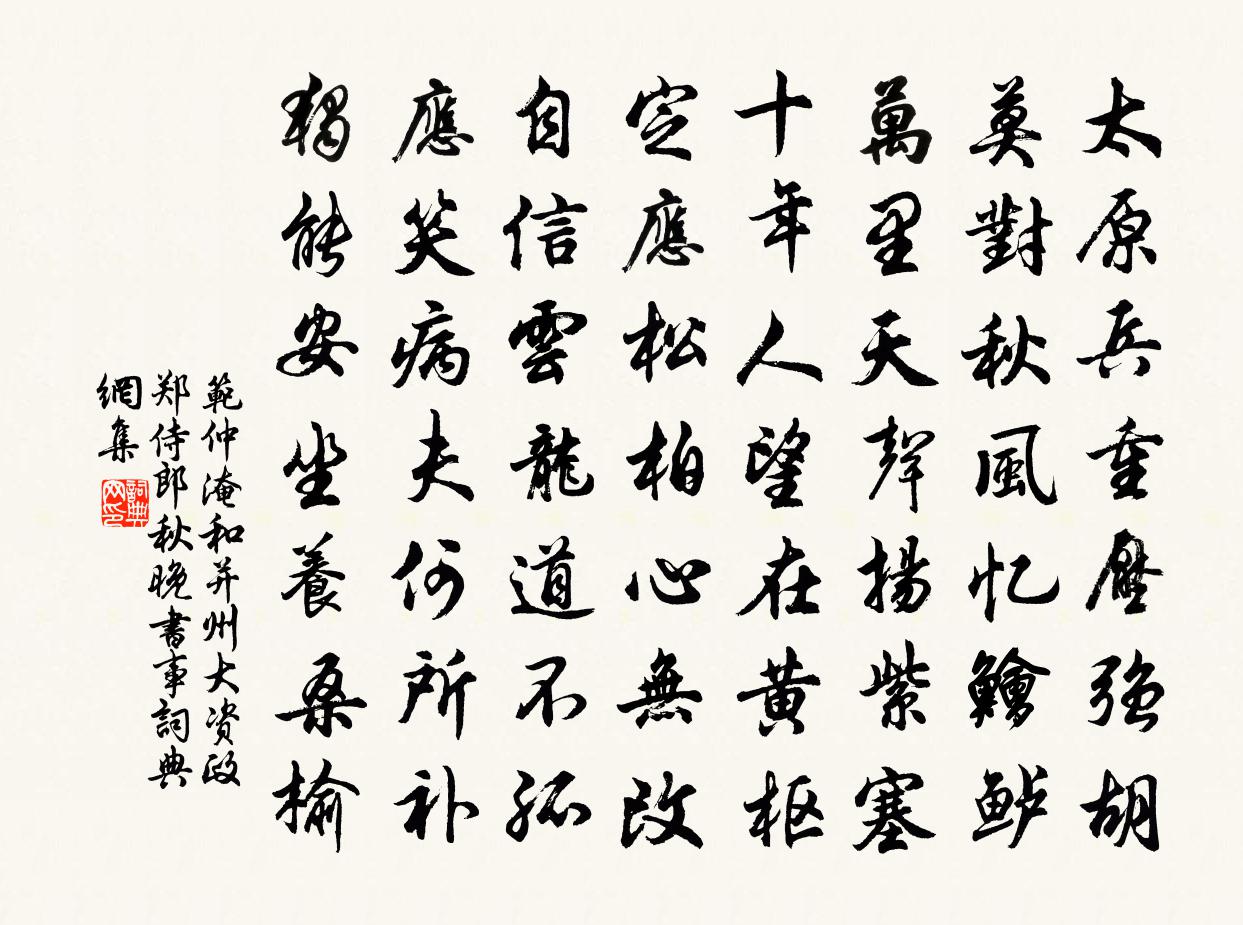 太原兵重壓强胡
莫對秋風忆鱠鲈
萬里天聲揚紫塞
十年人望在黄枢
定應松柏心無改
自信雲龍道不孤
應笑病夫何所补
獨能安坐養桑榆
範仲淹和并州大资政
郑侍郎秋晚書事詞典
網集
詞典網印